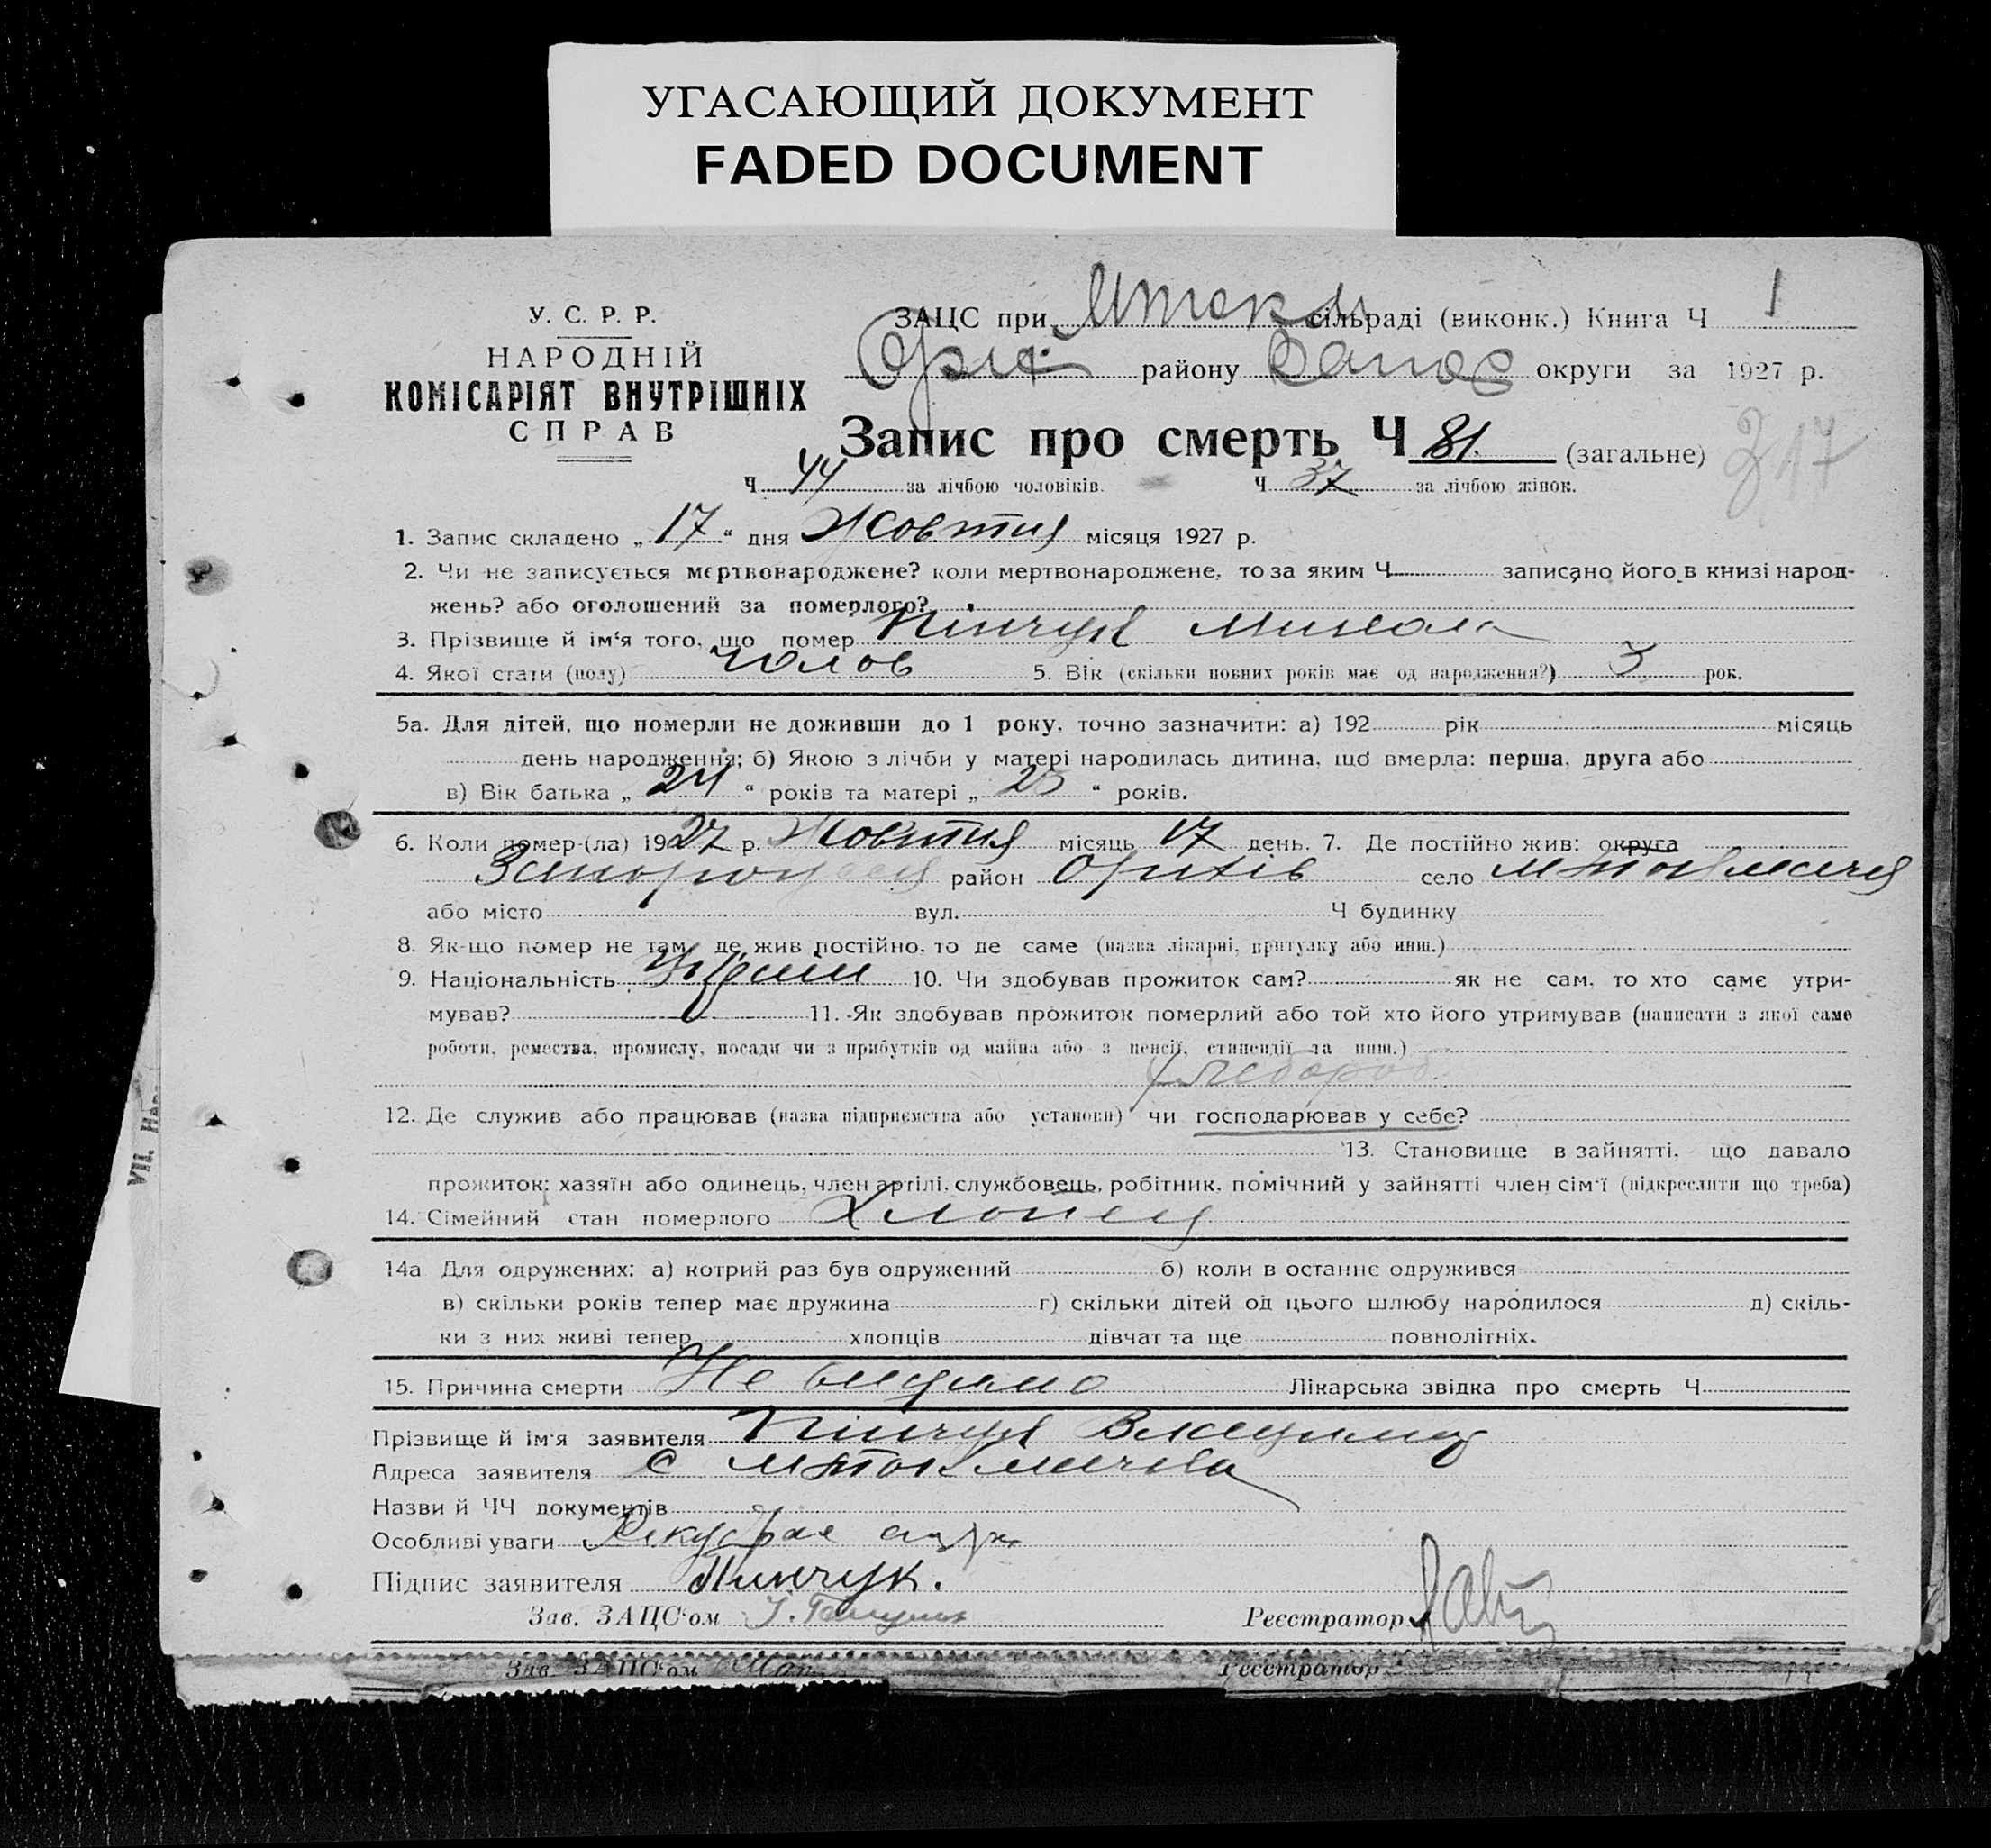 УГАСАЮЩИЙ ДОКУМЕНТ
FADED DOCUMENT
У. С. Р. Р.
НАРОДНІЙ
КОМІСАРІЯТ ВНУТРІШНІХ
СПРАВ
ЗАЦС при сільраді (виконк.) Книга Ч 1
району округи за 1927 р.
Запис про смерть Ч 81. (загальне)
317
Ч 44 за лічбою чоловіків. Ч 37 за лічбою жінок.
1. Запис складено „ 17 “ дня Жовтня місяця 1927 р.
2. Чи не записується мертвонароджене? коли мертвонароджене, то за яким Ч записано його в книзі народ-
жень? або оголошений за померлого?
3. Прізвище й ім'я того, що помер Пінчук Микола
4. Якої стати (полу) чолов 5. Вік (скільки повних років має од народження?) 3 рок.
5а. Для дітей, що померли не доживши до 1 року, точно зазначити: а) 192 рік місяць
день народження; б) Якою з лічби у матері народилась дитина, що вмерла: перша, друга або
в) Вік батька „ 24 “ років та матері „ 23 “ років.
6. Коли помер-(ла) 1927 р. Жовтня місяць 17 день. 7. Де постійно жив: округа
район Оріхів село
або місто вул. Ч будинку
8. Як-що помер не там, де жив постійно, то де саме (назва лікарні, притулку або инш.)
9. Національність 10. Чи здобував прожиток сам? як не сам, то хто саме утри-
мував? 11. Як здобував прожиток померлий або той хто його утримував (написати з якої саме
роботи, ремества, промислу, посади чи з прибутків од майна або з пенсії, стипендії та инш.)
хлебороб
12. Де служив або працював (назва підприємства або установи) чи господарював у себе?
13. Становище в зайнятті, що давало
прожиток: хазяїн або одинець, член артілі, службовець, робітник, помічний у зайнятті член сім'ї (підкреслити що треба)
14. Сімейний стан померлого Хлопець
14а Для одружених: а) котрий раз був одружений б) коли в останнє одружився
в) скільки років тепер має дружина г) скільки дітей од цього шлюбу народилося д) скіль-
ки з них живі тепер хлопців дівчат та ще повнолітніх.
15. Причина смерти Не видомо Лікарська звідка про смерть Ч
Прізвище й ім'я заявителя Пінчук
Адреса заявителя с
Назви й ЧЧ документів
Особливі уваги
Підпис заявителя Пинчук.
Зав. ЗАЦС'ом Реєстратор
Зав. ЗАЦС'ом Реєстратор